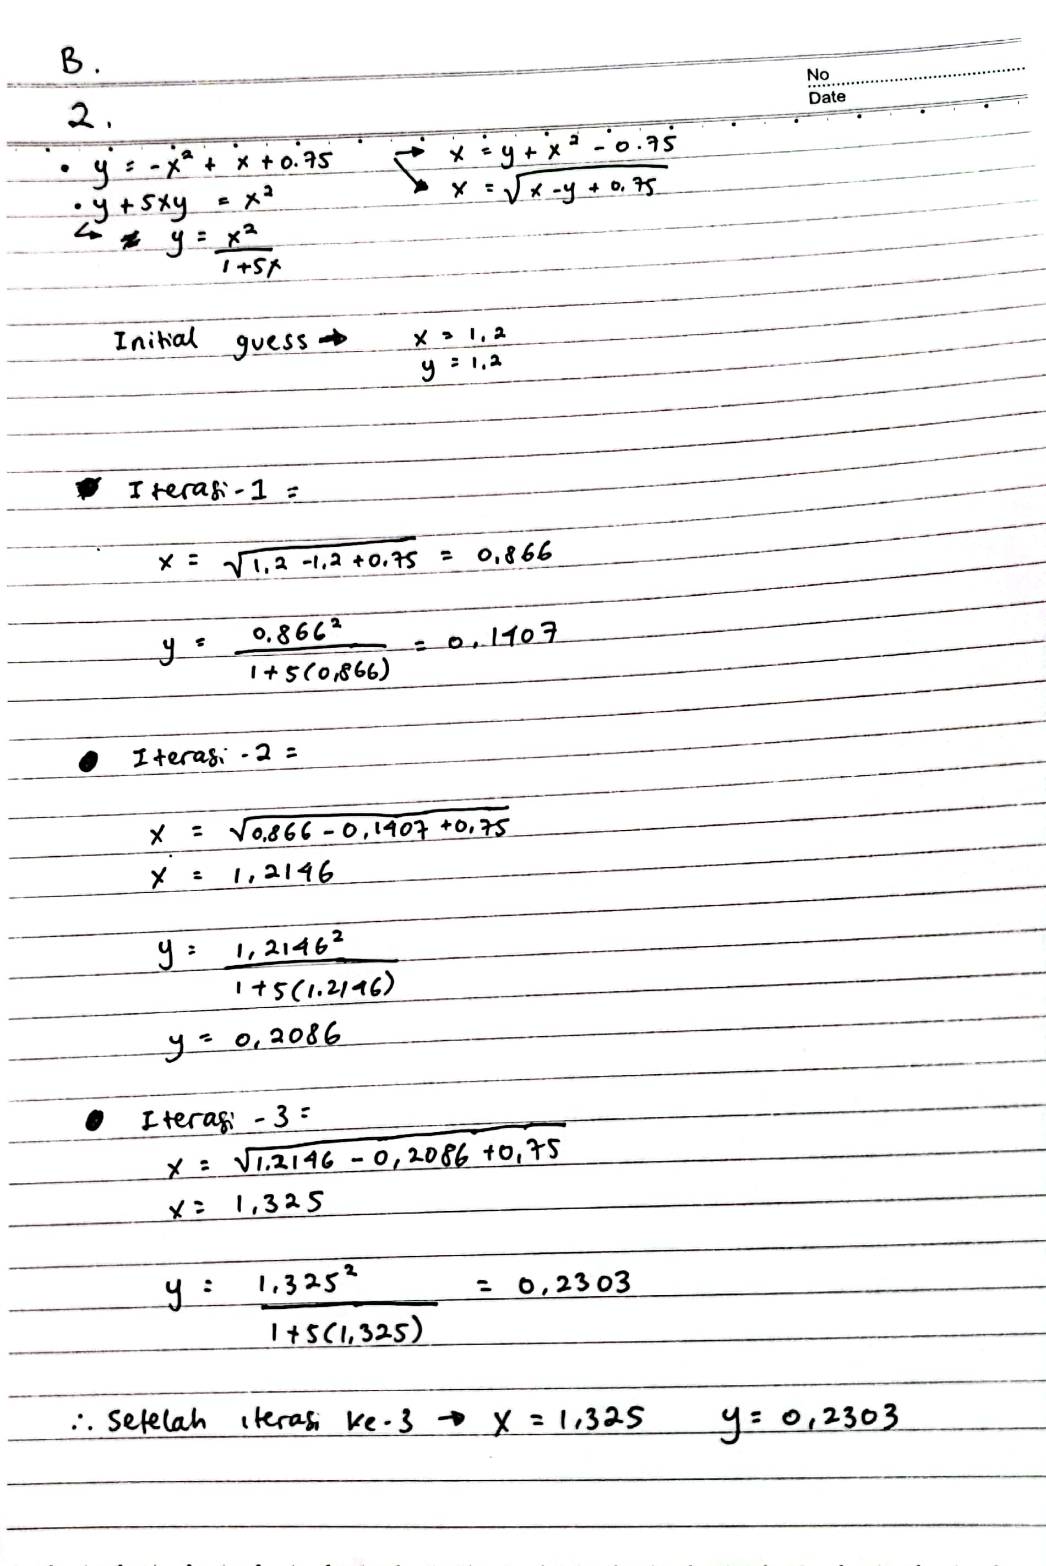 B.
No
Date
2.
• y = -x² + x + 0.75 → x = y + x² - 0.75
→ x = √x - y + 0,75
• y + 5xy = x²
↳ y = x²
1+5x
Initial guess → x = 1,2
y = 1,2
Iterasi-1 =
x = √1,2 -1,2 +0.75 = 0,866
y = 0.866² = 0.1407
1+5(0,866)
• Iterasi-2 =
x = √0,866 - 0,1407 +0,75
x = 1,2146
y = 1,2146²
1+5(1.2146)
y = 0,2086
• Iterasi-3 =
x = √1.2146 - 0,2086 +0,75
x = 1,325
y = 1,325² = 0,2303
1+5(1,325)
∴ setelah iterasi ke-3 → x = 1,325 y = 0,2303